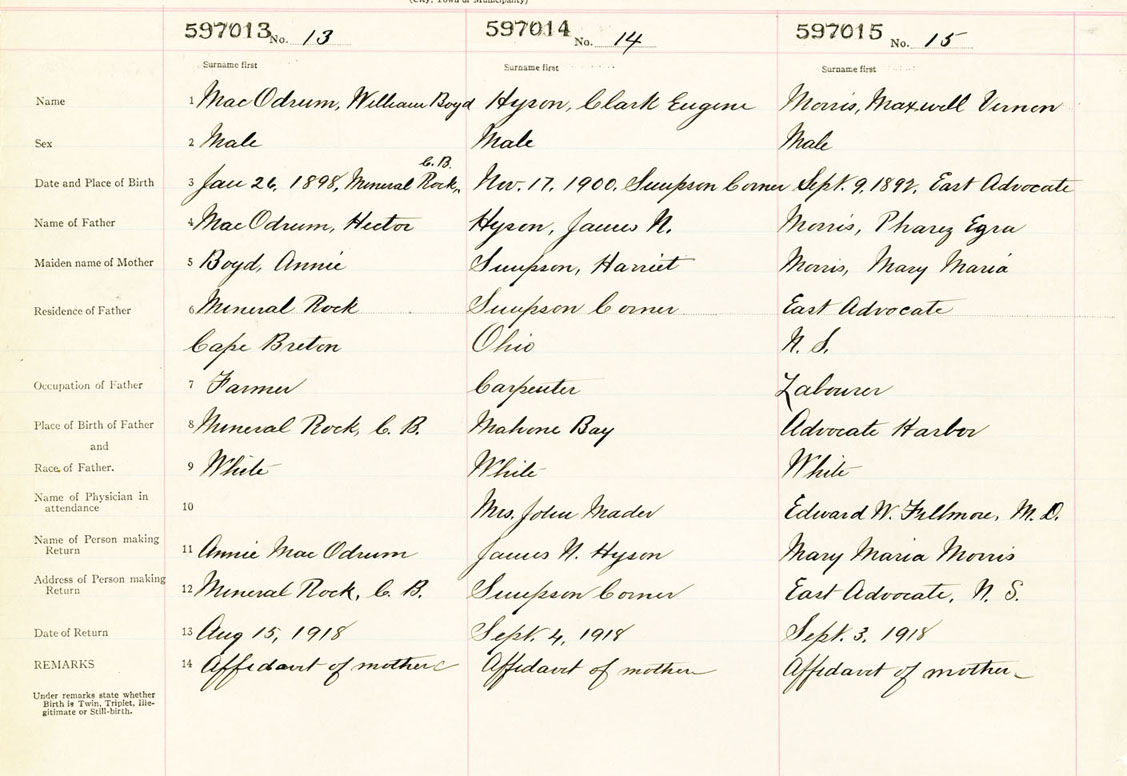 (City, Town or Municipality)
597013 No. 13 597014 No. 14 597015 No. 15
Surname first Surname first Surname first
Name 1 MacOdrum, William Boyd Hyson, Clark Eugene Morris, Maxwell Vernon
Sex 2 Male Male Male
C. B.
Date and Place of Birth 3 Jan 26, 1898, Mineral Rock, Nov. 17, 1900, Simpson Corner Sept. 9, 1892, East Advocate
Name of Father 4 MacOdrum, Hector Hyson, James N. Morris, Pharez Ezra
Maiden name of Mother 5 Boyd, Annie Simpson, Harriet Morris, Mary Maria
Residence of Father 6 Mineral Rock Simpson Corner East Advocate
Cape Breton Ohio N. S.
Occupation of Father 7 Farmer Carpenter Labourer
Place of Birth of Father 8 Mineral Rock, C. B. Mahone Bay Advocate Harbor
and
Race of Father. 9 White White White
Name of Physician in
attendance 10 Mrs. John Mader Edward W. Fillmore, M. D.
Name of Person making
Return 11 Annie MacOdrum James N. Hyson Mary Maria Morris
Address of Person making
Return 12 Mineral Rock, C. B. Simpson Corner East Advocate, N. S.
Date of Return 13 Aug 15, 1918 Sept. 4, 1918 Sept. 3, 1918
REMARKS 14 Affidavit of mother Affidavit of mother Affidavit of mother
Under remarks state whether
Birth is Twin, Triplet, Ille-
gitimate or Still-birth.